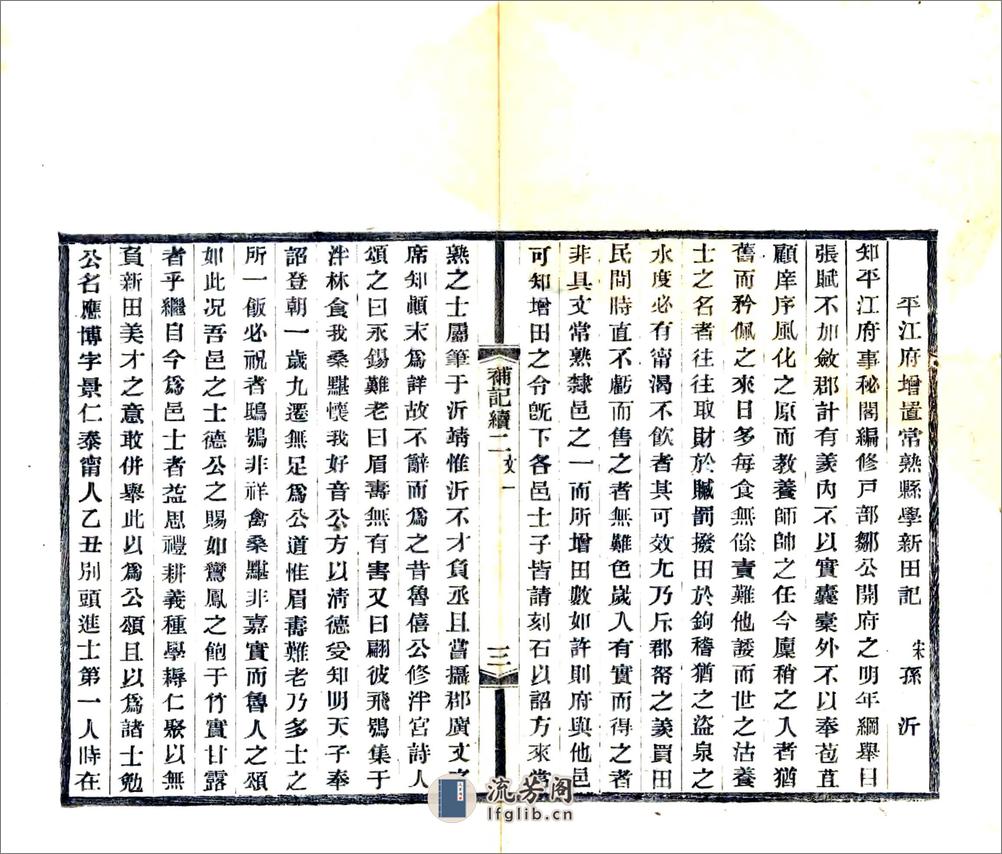 平江府增置常熟縣學新田記 宋孫沂
知平江府事秘閣編修戸部鄒公開府之明年綱舉目
張賦不加斂郡計有羨內不以實囊橐外不以奉苞苴
顧庠序風化之原而教養師帥之任今廩稍之入者猶
舊而矜佩之來日多每食無餘責難他諉而世之沽養
士之名者往往取財於贓罰撥田於鉤稽猶之盜泉之
水度必有甯渴不飲者其可效尤乃斥郡帑之羨買田
民間時直不虧而售之者無難色歲入有實而得之者
非具文常熟隸邑之一而所增田數如許則府與他邑
可知增田之令旣下各邑士子皆請刻石以詔方來常
補記續二 文一
三
熟之士屬筆于沂竫惟沂不才負丞且嘗攝郡廣文之
席知顚末爲詳故不辭而爲之昔魯僖公修泮宮詩人
頌之曰永錫難老曰眉壽無有害又曰翩彼飛鴞集于
泮林食我桑黮懷我好音公方以淸德受知明天子奉
詔登朝一歲九遷無足爲公道惟眉壽難老乃多士之
所一飯必祝者鴟鴞非祥禽桑黮非嘉實而魯人之頌
如此况吾邑之士德公之賜如鸞鳳之飽于竹實甘露
者乎繼自今爲邑士者益思禮耕義種學耨仁聚以無
負新田美才之意敢併舉此以爲公頌且以爲諸士勉
公名應博字景仁泰甯人乙丑別頭進士第一人時在
流芳阁
lfglib.cn